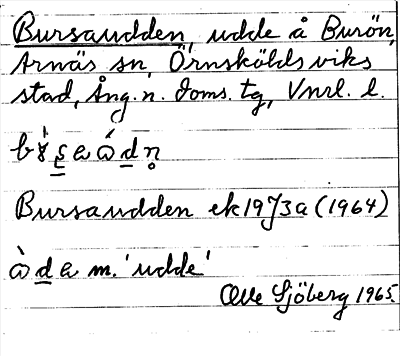 Bursaudden, udde å Burön,
Arnäs sn, Örnsköldsviks
stad, Ång. n. doms. tg, Vnrl. l.
Bursaudden ek 19J3a (1964)
à d a m. 'udde'
Olle Sjöberg 1965.